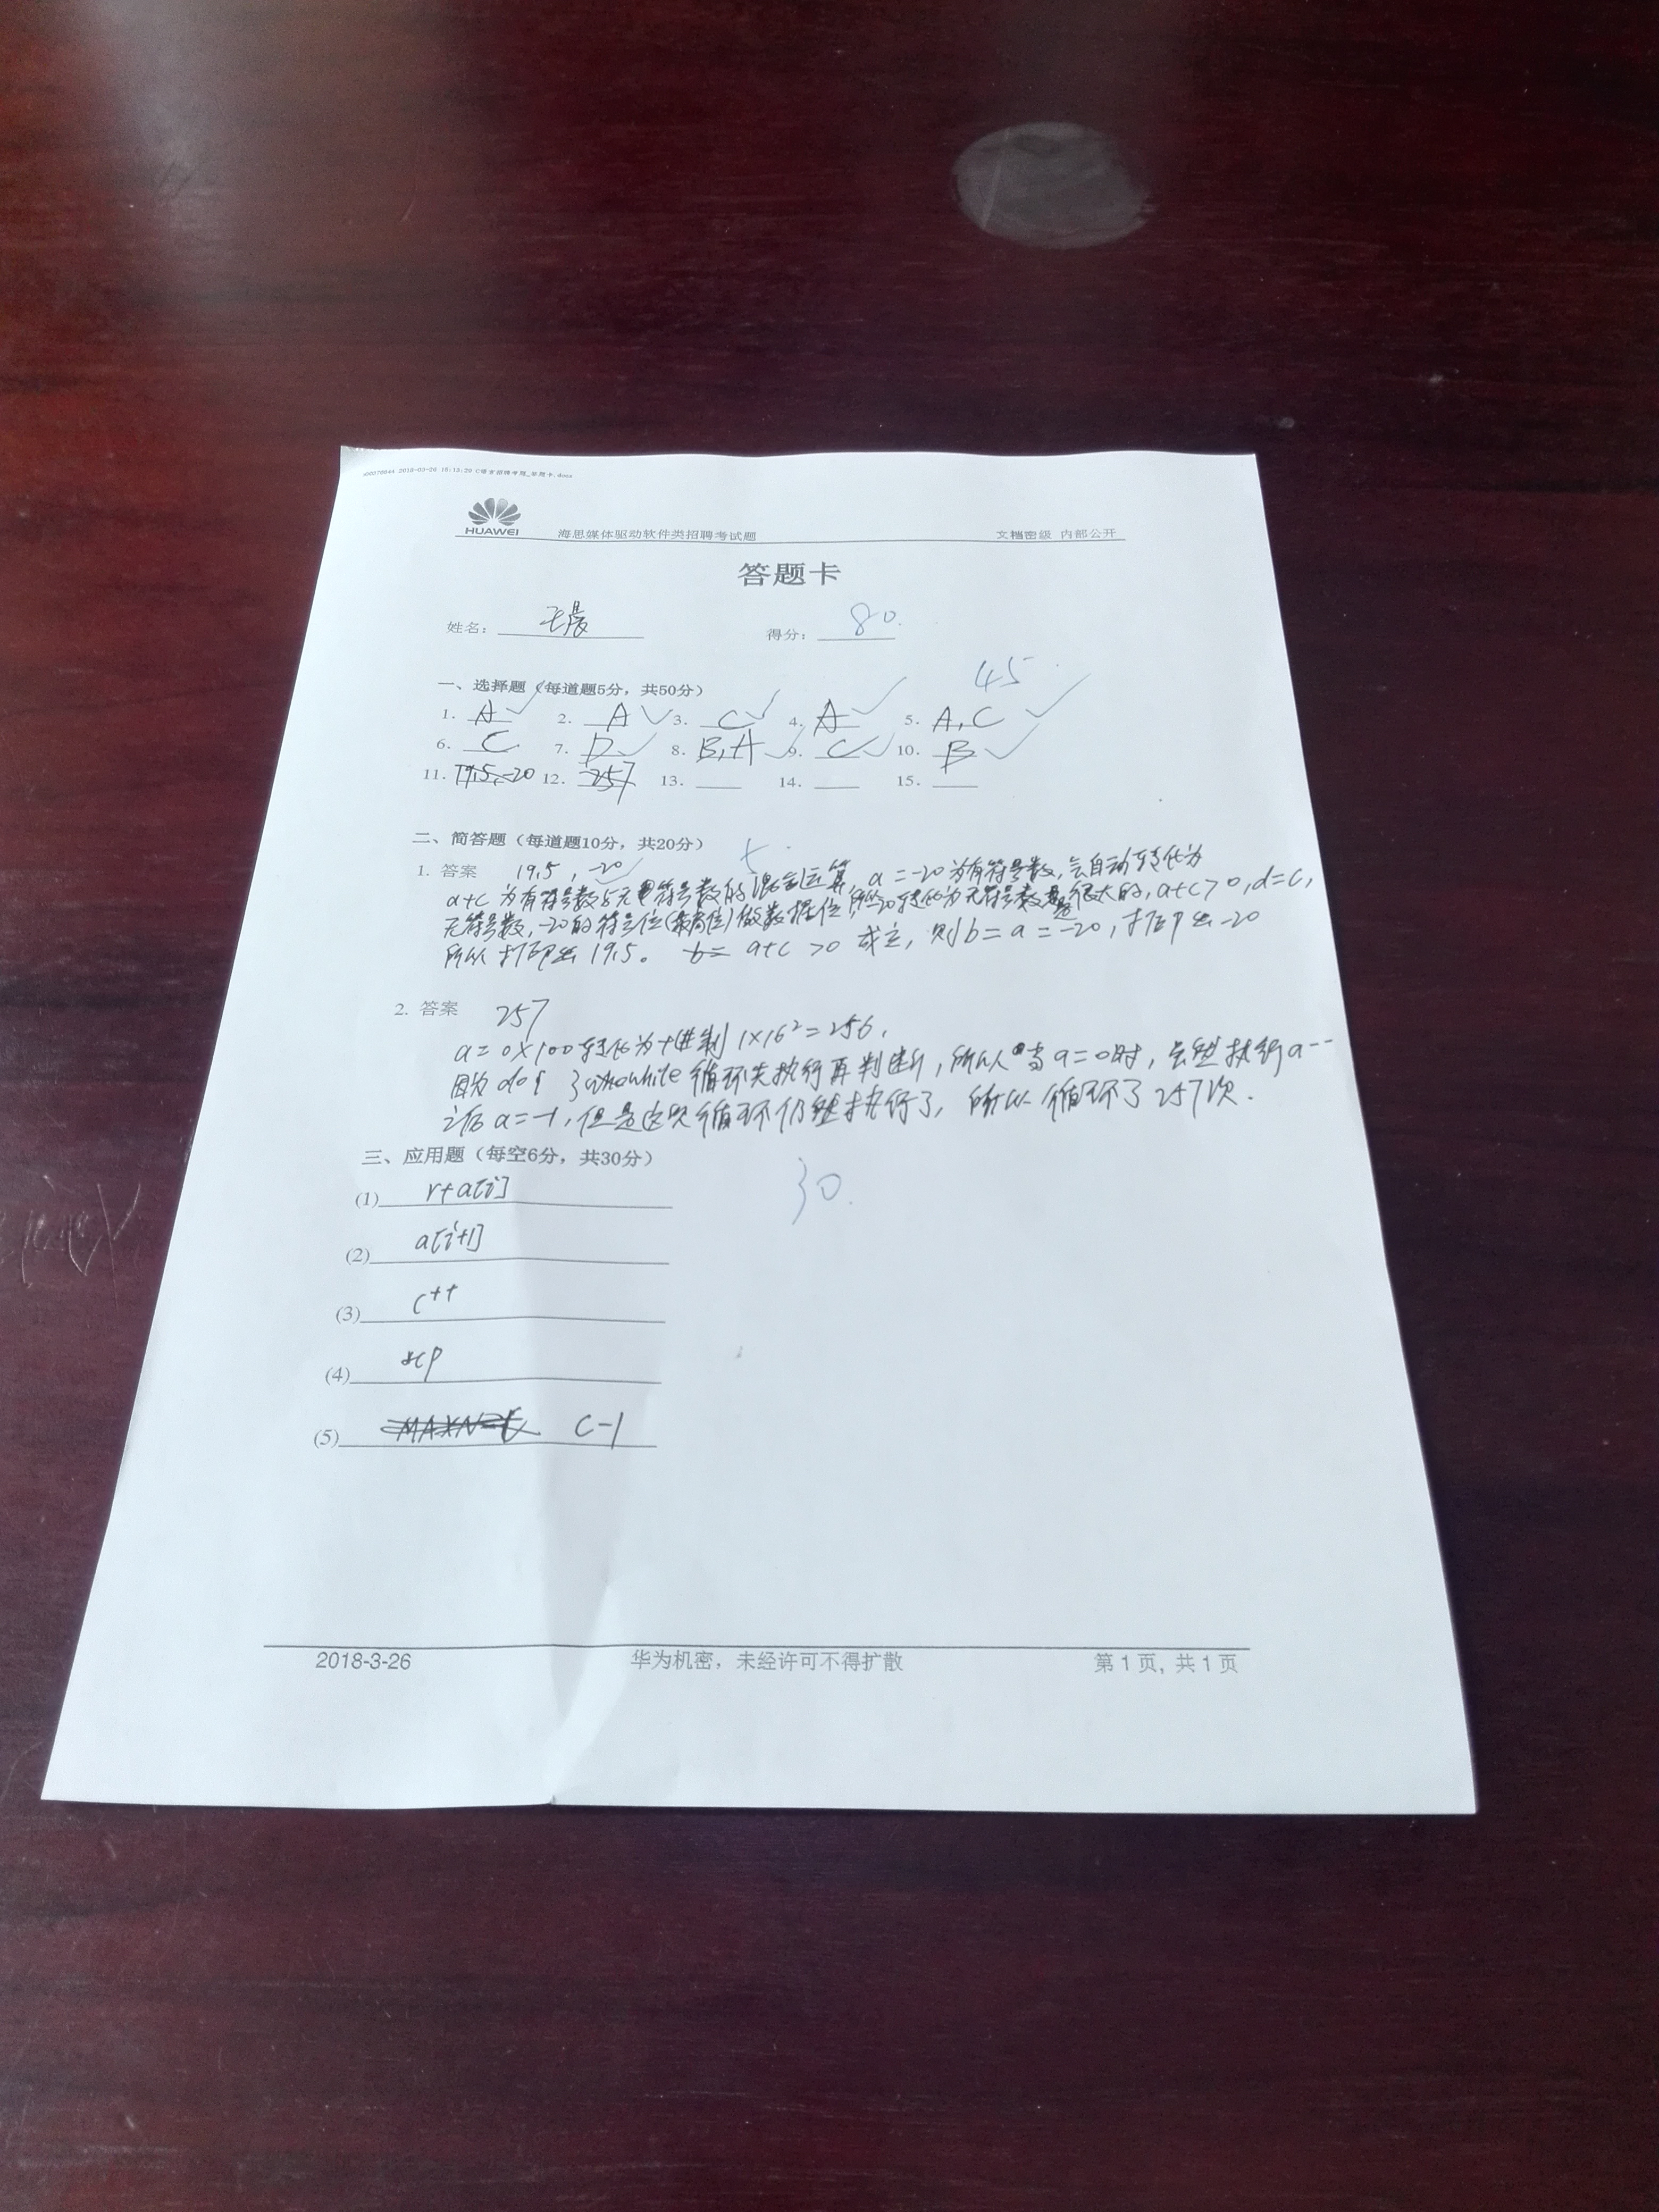 2018-03-26 16:13:20 C语言招聘考题_答题卡.docx
HUAWEI 海思媒体驱动软件类招聘考试题 文档密级 内部公开
答题卡
姓名： 王晨 得分： 80.
45
一、选择题（每道题5分，共50分）
1. A 2. A 3. C 4. A 5. A,C
6. C 7. D 8. B,A 9. C 10. B
11. 19.5,-20 12. 257 13. 14. 15.
二、简答题（每道题10分，共20分）
1. 答案 19.5, -20
a+c 为有符号数与无符号数的混合运算, a=-20为有符号数,会自动转化为
无符号数,-20的符号位(最高位)做数据位,所以-20转化为无符号数是很大的,a+c>0,d=c,
所以打印出19.5。 a+c >0 成立, 则b=a=-20,打印出-20
2. 答案 257
a=0x100转化为十进制 1×16²=256.
因为do{ }while循环先执行再判断,所以当a=0时,会执行a--
之后a=-1,但是这次循环仍然执行了,所以循环了257次.
三、应用题（每空6分，共30分）
30.
(1) r+a[i]
(2) a[i+1]
(3) c++
(4) &p
(5) MAXN-C C-1
2018-3-26 华为机密，未经许可不得扩散 第 1 页, 共 1 页